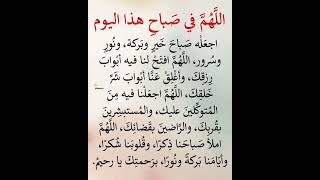 اللَّهُمَّ في صَباحِ هذا اليوم
اجعَلْه صَباحَ خَيرٍ وبَركة، ونُورٍ
وسُرور، اللَّهُمَّ افتَحْ لنا فيه أبوابَ
رِزقِكَ، وأغلِقْ عَنَّا أبوابَ شَرِّ
خَلقِكَ، اللَّهُمَّ اجعَلْنا فيه مِنَ
المُتوكِّلينَ عليك، والمُستبشِرينَ
بقُربِكَ، والرَّاضينَ بقَضائِكَ، اللَّهُمَّ
املأْ صَباحَنا ذِكرًا، وقُلوبَنا شُكرًا،
وأيّامَنا بَركةً ونُورًا، برَحمتِكَ يا رحيمُ.